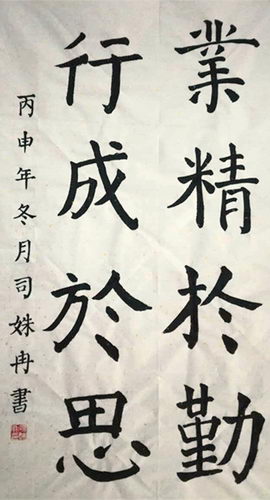 業精於勤
行成於思
丙申年冬月司姝冉書